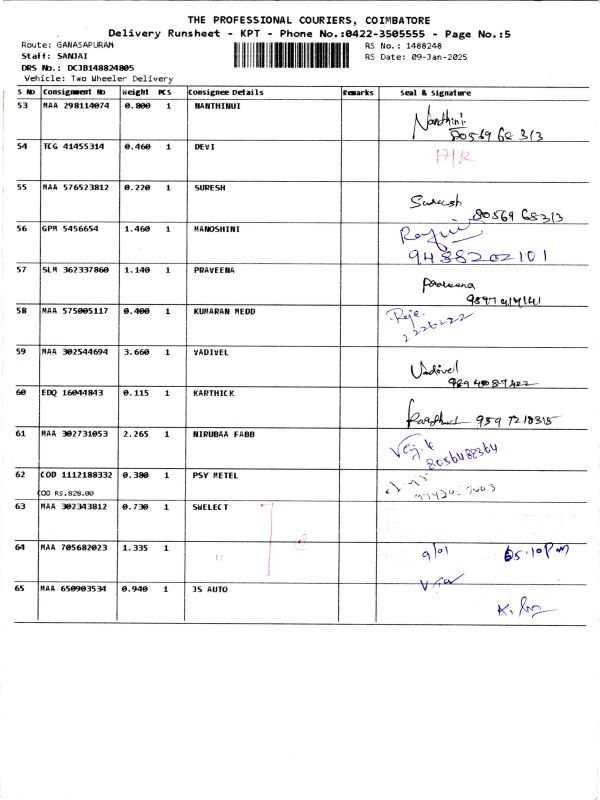 THE PROFESSIONAL COURIERS, COIMBATORE
Delivery Runsheet - KPT - Phone No.:0422-3505555 - Page No.:5
Route: GANASAPURAM RS No.: 1488248
Staff: SANJAI RS Date: 09-Jan-2025
DRS No.: DCJB148824805
Vehicle: Two Wheeler Delivery
S No Consignment No Weight PCS Consignee Details Remarks Seal & Signature
53 MAA 298114074 0.800 1 NANTHINUI
Nandhini
80569 68313
54 TCG 41455314 0.460 1 DEVI
55 MAA 576523812 0.220 1 SURESH
Suresh
80569 68313
56 GPM 5456654 1.460 1 MANOSHINI
9488202101
57 SLM 362337860 1.140 1 PRAVEENA
Praveena
58 MAA 575005117 0.400 1 KUMARAN MEDD
59 MAA 302544694 3.660 1 VADIVEL
Vadivel
60 EDQ 16044843 0.115 1 KARTHICK
61 MAA 302731053 2.265 1 NIRUBAA FABB
8056488364
62 COD 1112188332 0.380 1 PSY METEL
COD RS.828.00
63 MAA 302343812 0.730 1 SWELECT
64 MAA 705682023 1.335 1
9/01 05.10pm
65 MAA 650903534 0.940 1 JS AUTO